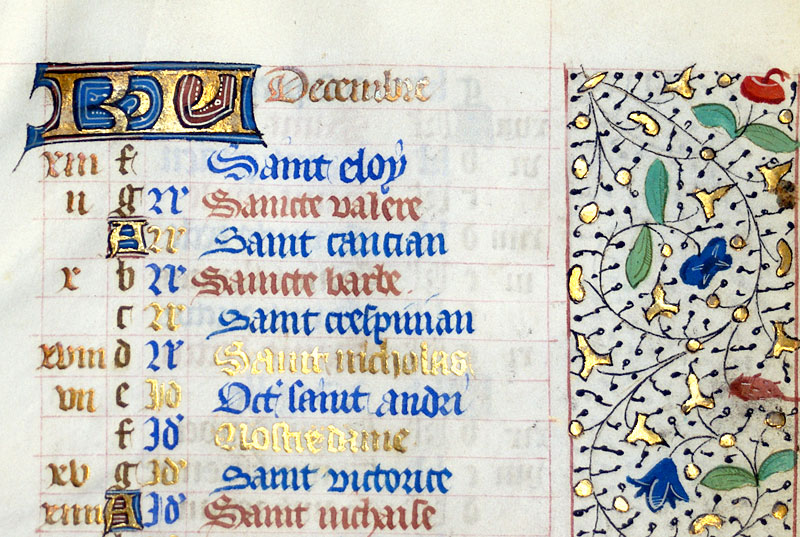 KL Decembre
xiii f Saint eloy
ii g N Saincte valere
A N Saint cancian
x b N Saincte barbe
c N Saint crespinian
xviii d N Saint nicholas
vii e Id Oct saint andri
f Id Nostre dame
xv g Id Saint victorice
xiiii A Id Saint nichaise